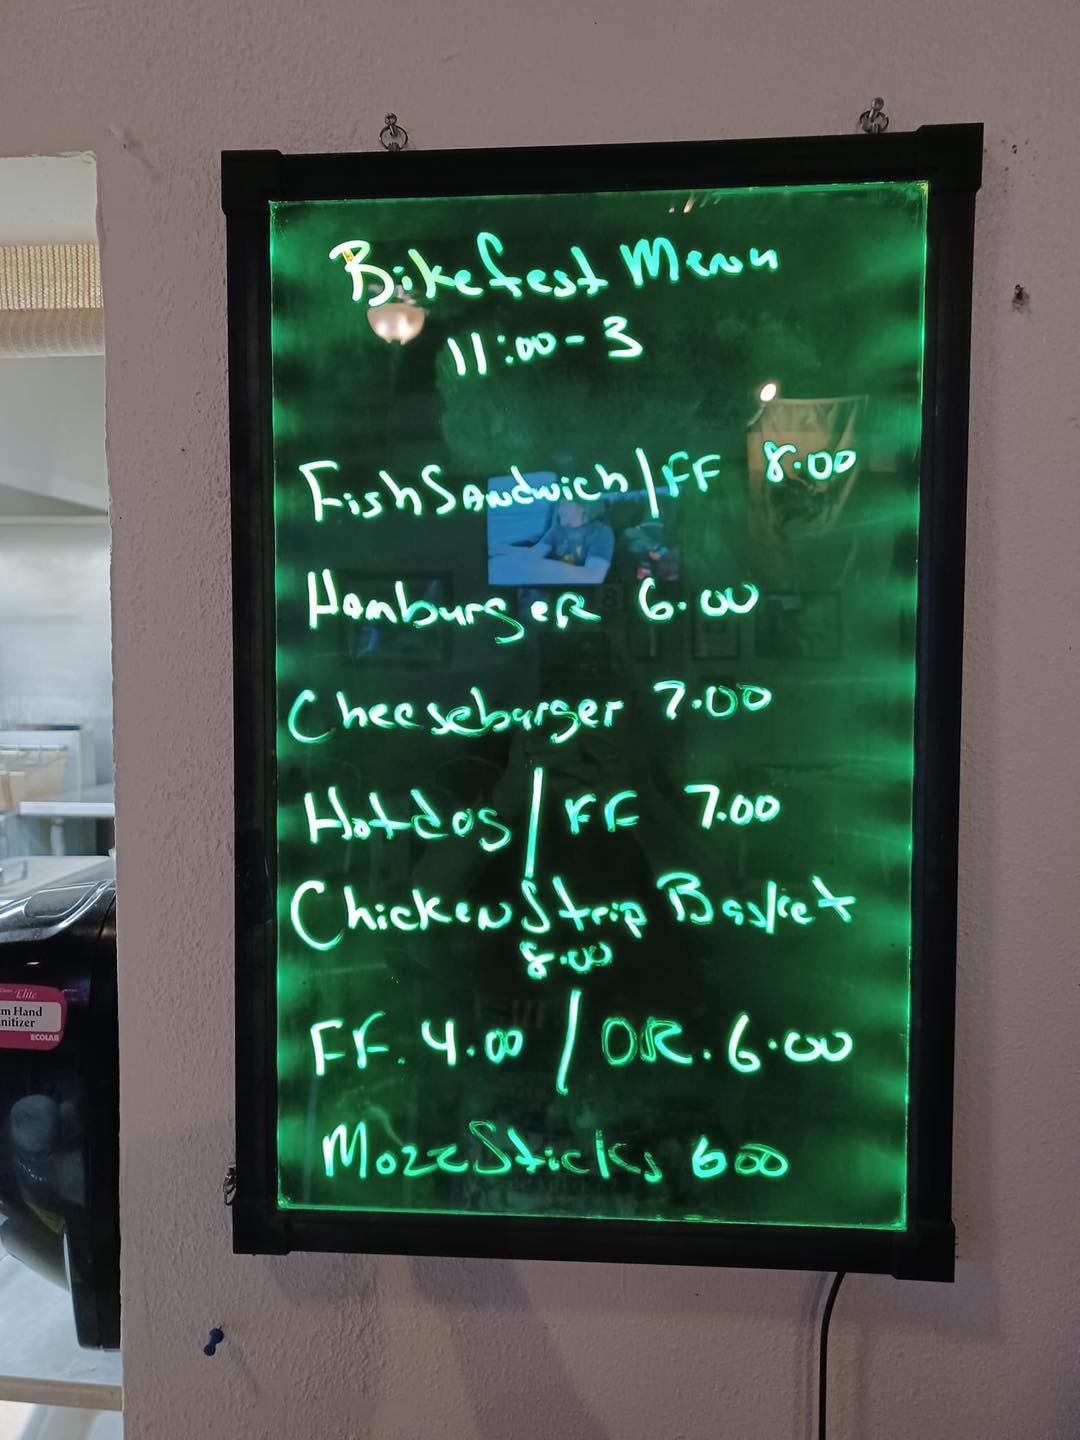 Bikefest Menu
11:00-3
Fish Sandwich/FF 8.00
HamburgeR 6.00
Cheeseburger 7.00
Hotdog/FF 7.00
Chicken Strip Basket
8.00
FF. 4.00 / OR. 6.00
Mozz Sticks 600
Elite
m Hand
nitizer
ECOLAB